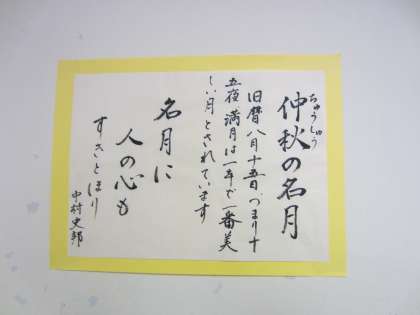 仲秋の名月
ちゅうしゅう
旧暦八月十五日、つまり十
五夜満月は一年で一番美
しい月とされています
名月に
人の心も
すきとほり
中村史邦